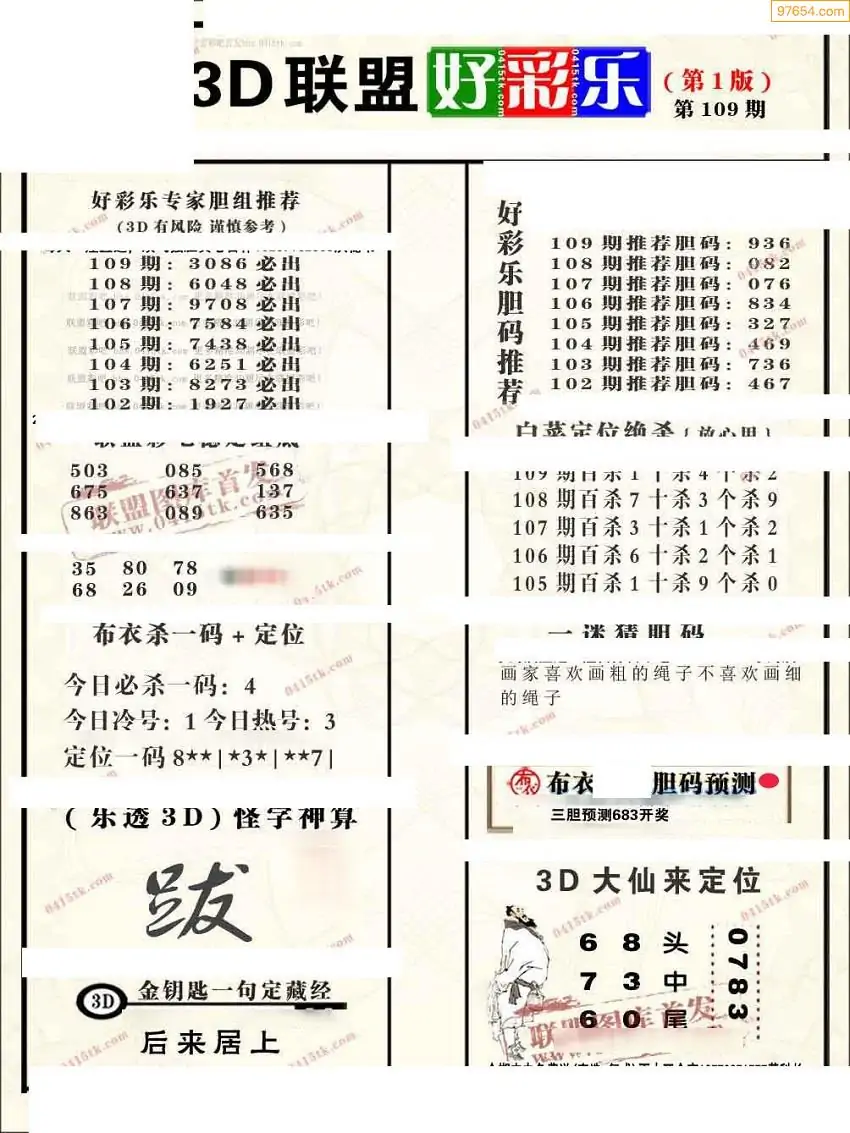 97654.com
3D联盟 好彩乐
(第1版)
第109期
好彩乐专家胆组推荐
(3D有风险 谨慎参考)
109期: 3086必出
108期: 6048必出
107期: 9708必出
106期: 7584必出
105期: 7438必出
104期: 6251必出
103期: 8273必出
102期: 1927必出
503 085 568
675 637 137
863 089 635
35 80 78
68 26 09
布衣杀一码+定位
今日必杀一码: 4
今日冷号: 1 今日热号: 3
定位一码8**|*3*|**7|
(乐透3D)怪字神算
跋
3D 金钥匙一句定藏经
后来居上
好彩乐胆码推荐
109期推荐胆码: 936
108期推荐胆码: 082
107期推荐胆码: 076
106期推荐胆码: 834
105期推荐胆码: 327
104期推荐胆码: 469
103期推荐胆码: 736
102期推荐胆码: 467
白菜定位绝杀(放心用)
109期百杀1十杀4个杀2
108期百杀7十杀3个杀9
107期百杀3十杀1个杀2
106期百杀6十杀2个杀1
105期百杀1十杀9个杀0
一谜猜胆码
画家喜欢画粗的绳子不喜欢画细
的绳子
布衣 胆码预测
三胆预测683开奖
3D大仙来定位
6 8 头
7 3 中
6 0 尾
0783
联盟图库首发
www.0415tk.com
0415tk.com